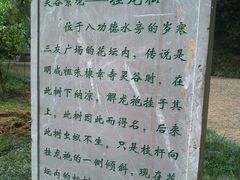 灵谷景观——挂龙松
位于八功德水旁的岁寒
三友广场的花坛内，传说是
明成祖朱棣幸寺灵谷时，在
此树下纳凉，解龙袍挂于其
上，此树因此而得名，后来
此树虫蚁不生，只是枝杆向
挂龙袍的一侧倾斜，现在花
坛内的